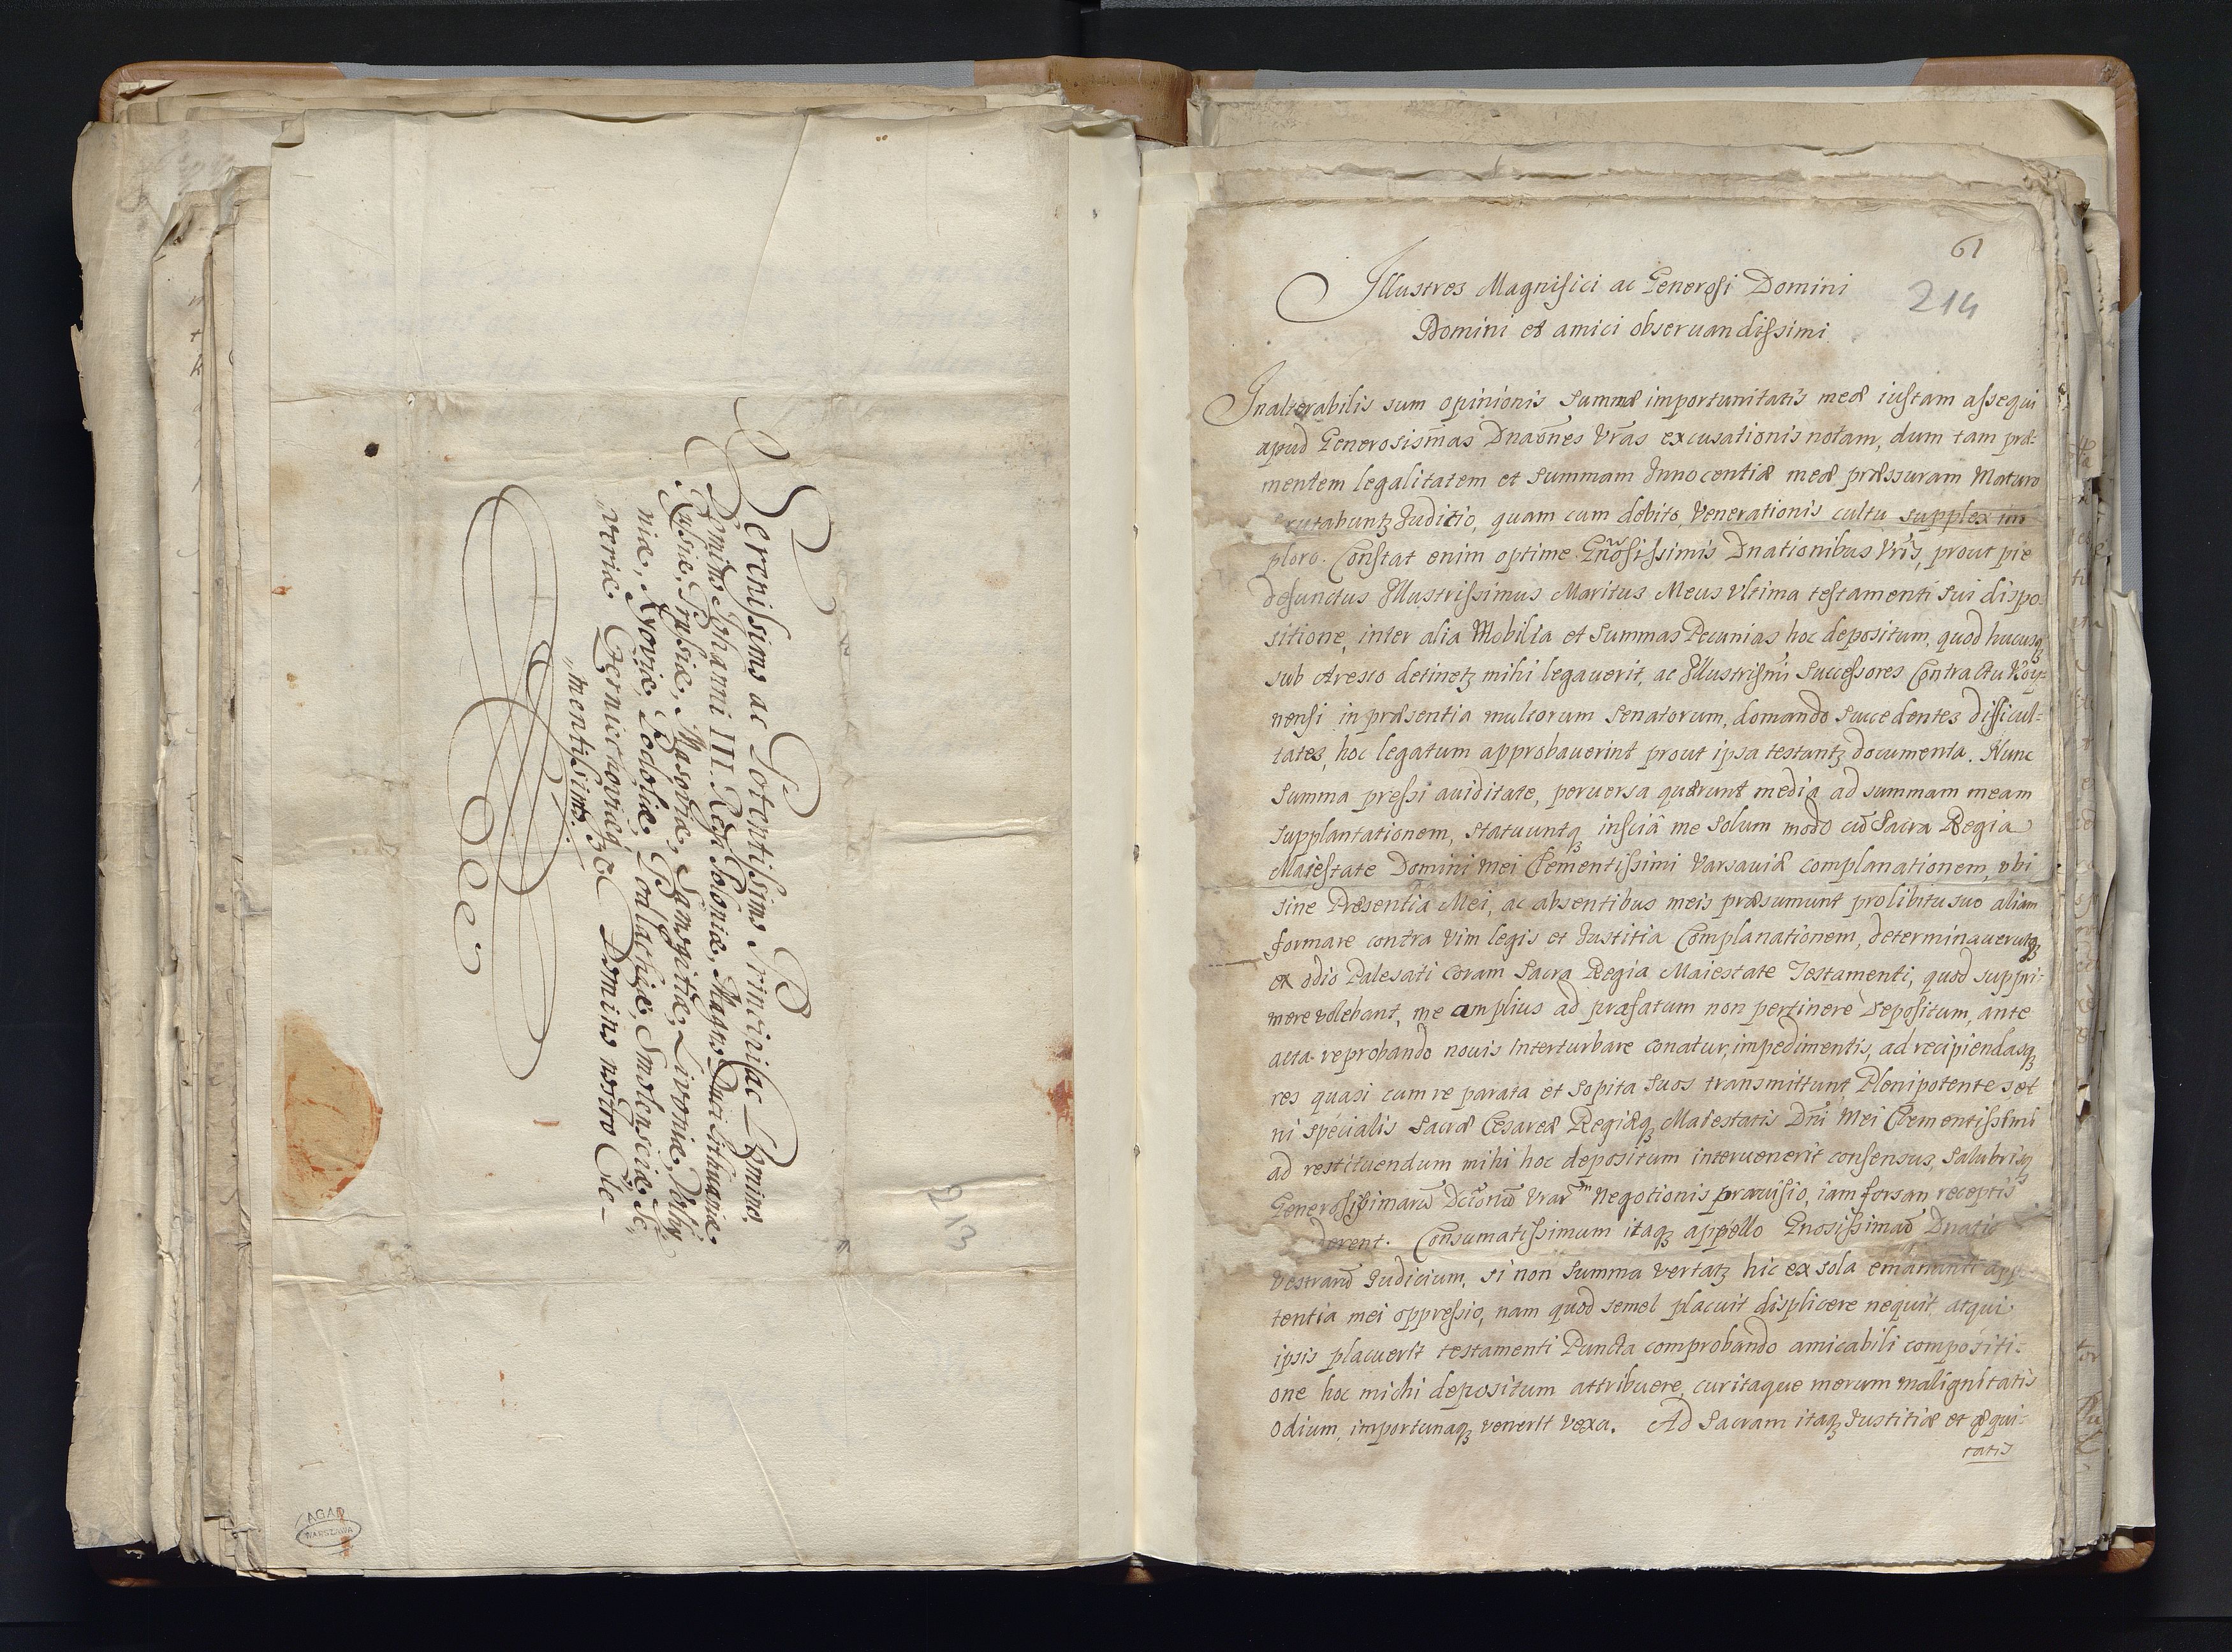 Serenissimo ac Potentissimo Principi ac Domino,
Domino Iohanni III. Regi Poloniæ, Magno Duci Lithuaniæ,
Russiæ, Prussiæ, Masoviæ, Samogitiæ, Livoniæ, Volhy-
niæ, Kyoviæ, Podoliæ, Podlachiæ, Smolensciæ, Se-
veriæ Czerniechoviæq3 &c Domino nostro Cle-
mentissimo.
213
AGAD
WARSZAWA
61
214
Illustres Magnifici ac Generosi Domini
Domini et amici obseruandissimi
Inalterabilis sum opinionis Summæ importunitatis meæ iustam assequi
apud Generosismas Dnaones Vras excusationis notam, dum tam præ-
mentem legalitatem et Summam Innocentiæ meæ præssuram Maturo
Iuditio, quam cum debito Venerationis cultu supplex im
ploro. Constat enim optime Gnosissimis Dnationibus Vris, prout pie
defunctus Illustrissimus Maritus Meus Vltima testamenti sui dispo-
sitione, inter alia Mobilia et Summas Pecunias hoc depositum, quod hucusq3
sub Aresto detinet3 mihi legauerit, ac Illustrismi Successores Contractu
nensi in præsentia multorum Senatorum, domando succedentes difficul-
tates, hoc legatum approbauerint prout ipsa testant3 documenta. Nunc
Summa pressi auiditate, peruersa quærunt media ad summam meam
supplantationem, statuuntq3 insciâ me solum modo cū Sacra Regia
Maiestate Domini mei Clementissimi Varsauiæ complanationem, vbi
sine Præsentia Mei, ac absentibus meis præsumunt pro libitu suo aliam
formare contra vim legis et Iustitia Complanationem, determinauerutq3
ex odio Palesati coram Sacra Regia Maiestate Testamenti, quod suppri-
mere volebant, me amplius ad præfatum non pertinere Depositum, ante
acta reprobando nouis Interturbare conatur, impedimentis, ad recipiendasq3
res quasi cum re parata et sopita suos transmittunt Plenipotente set
ni specialis Sacræ Cesareæ Regiæq3 Maiestatis Dni Mei Clementissimi
ad restituendum mihi hoc depositum interuenerit consensus, Salubrisq3
Generosissimarū Dcionū Vrar Negotionis prævisio, iam forsan receptis
derent. Consumatissimum itaq3 appello Gnosissimarū Dnatio
Vestrarū Iudicium, si non Summa vertat3 hic ex sola
tentia mei oppressio, nam quod semel placuit displicere nequit atqui
ipsis placuerit testamenti Puncta comprobando amicabili compositi-
one hoc michi depositum attribuere, cur itaque merum malignitatis
Odium, importunaq3 venerit vexa. Ad Sacram itaq3 Iustitiæ et æqui-
tatis